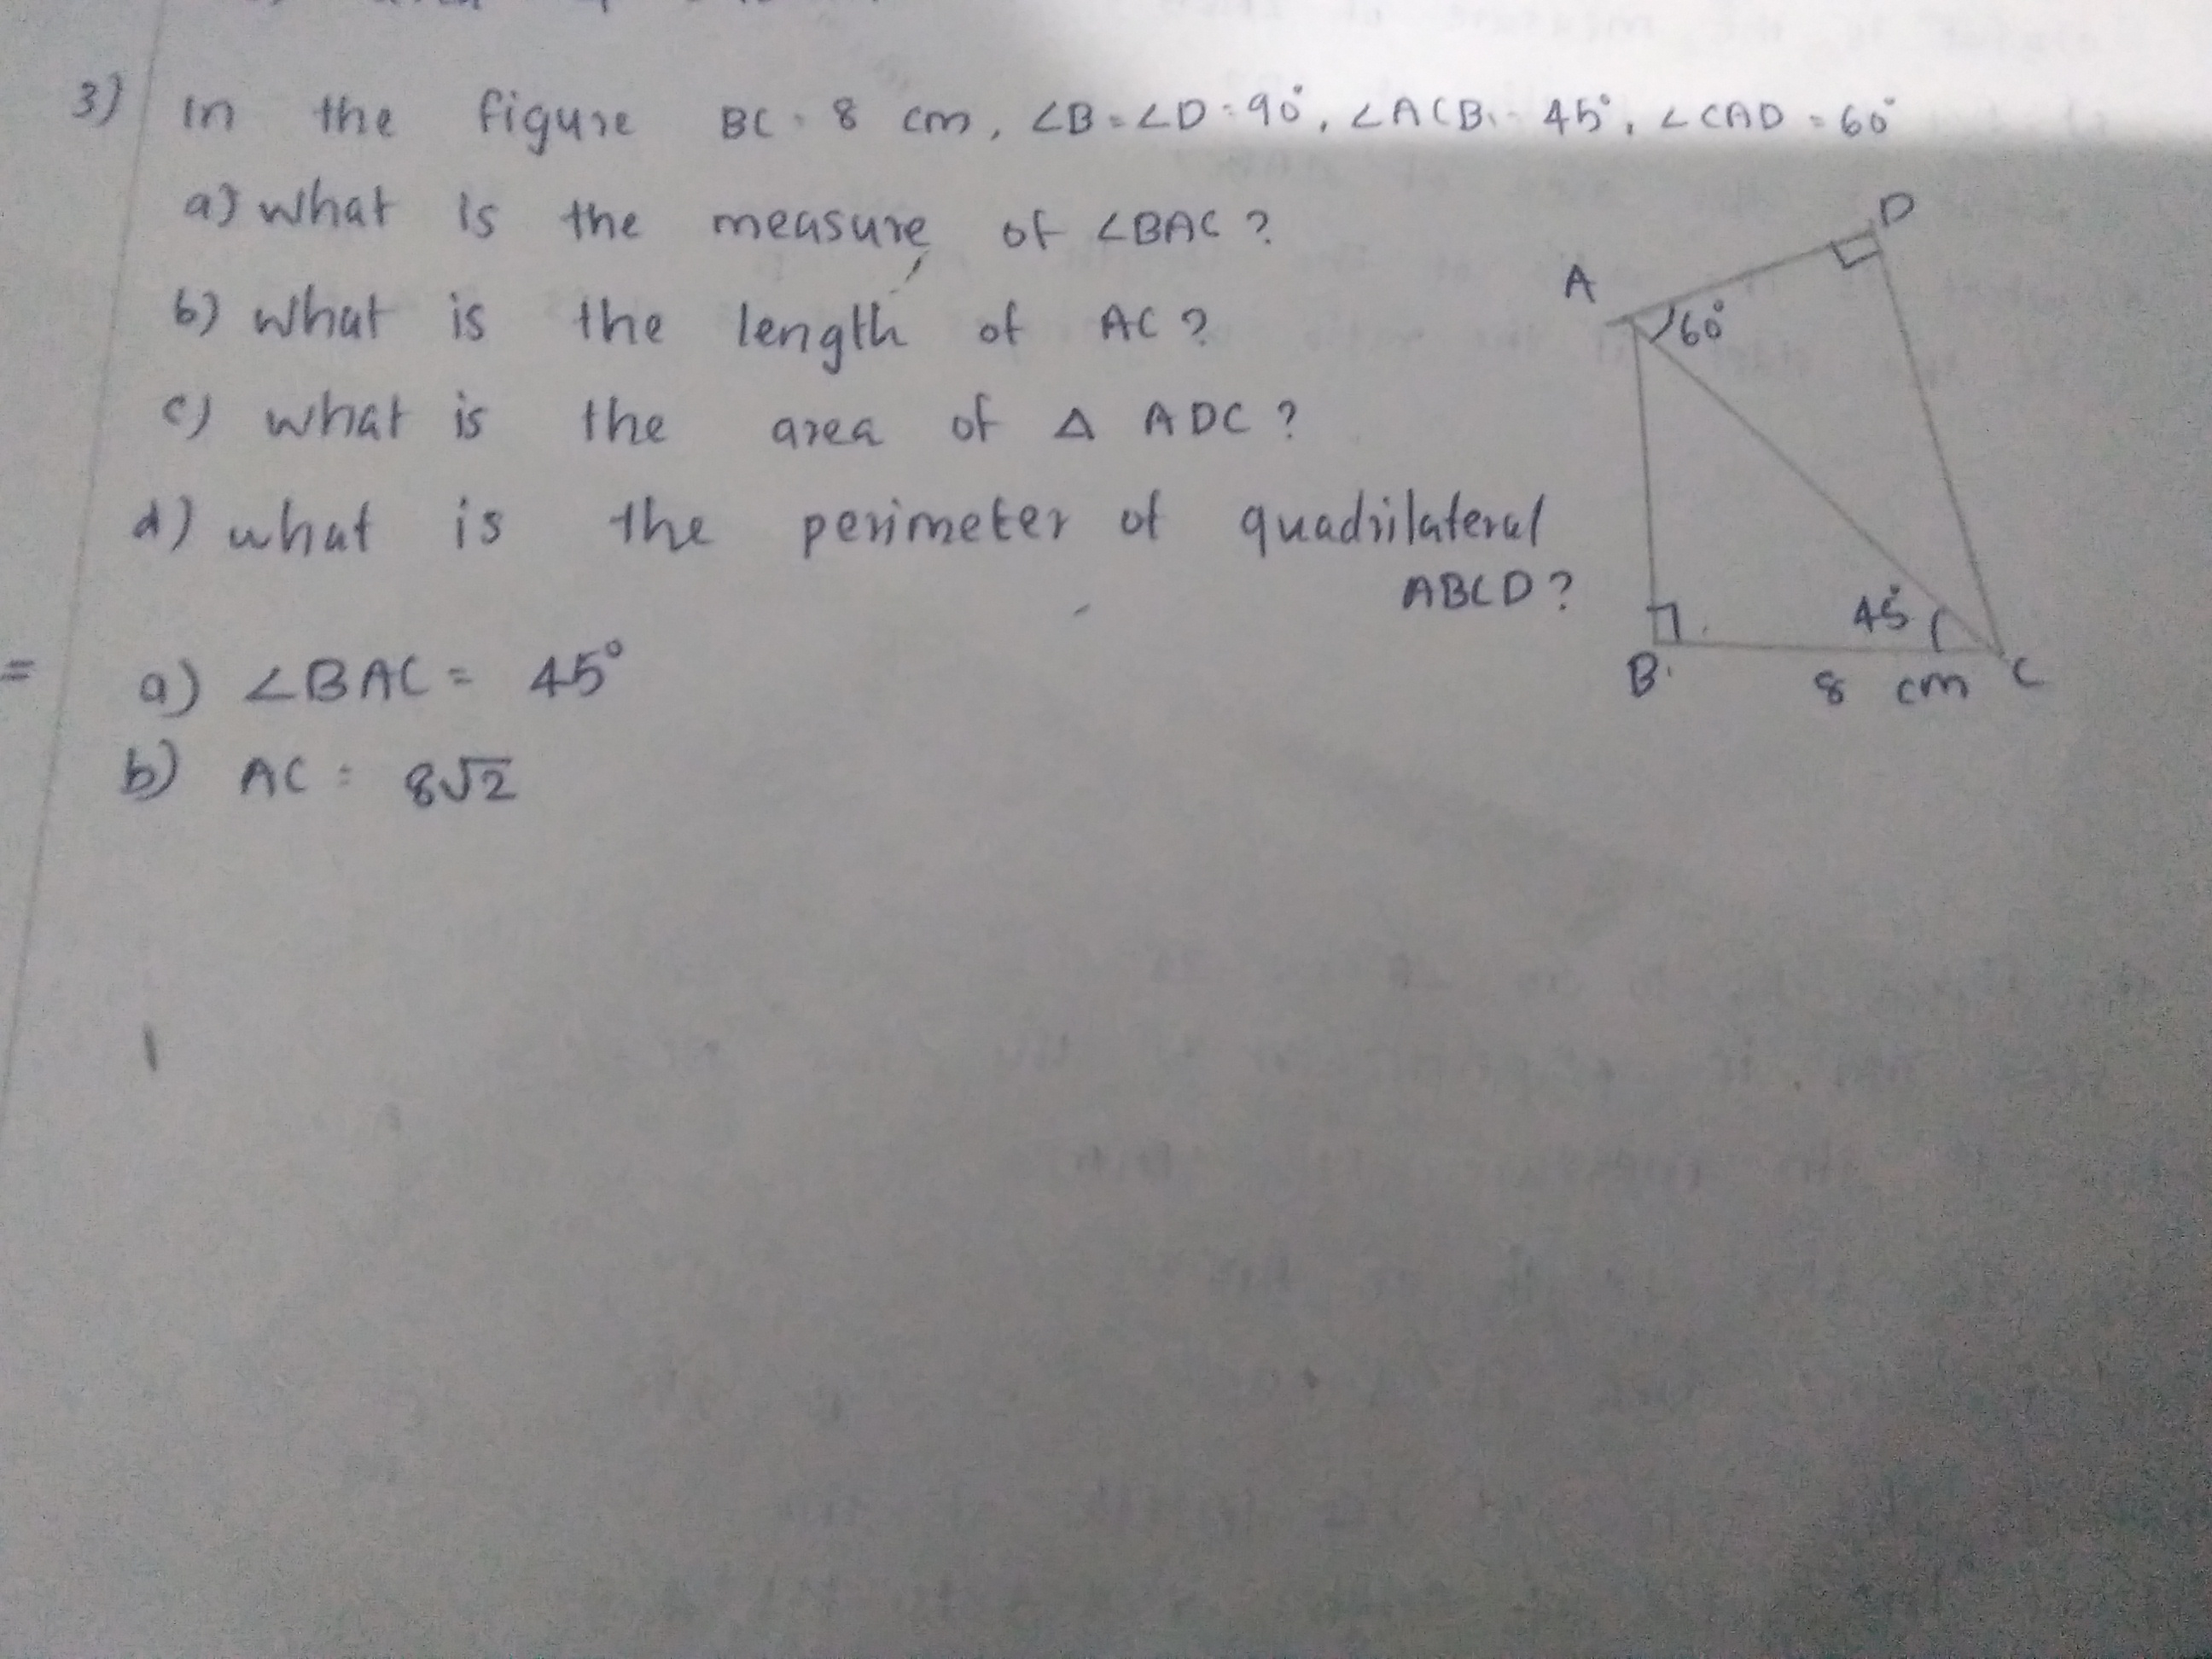 3) In the figure BC = 8 cm, ∠B = ∠D = 90°, ∠ACB = 45°, ∠CAD = 60°
a) what is the measure of ∠BAC ?
b) what is the length of AC ?
c) what is the area of △ ADC ?
d) what is the perimeter of quadrilateral
ABCD ?
D
A
60°
45°
B
8 cm
C
= a) ∠BAC = 45°
b) AC = 8√2